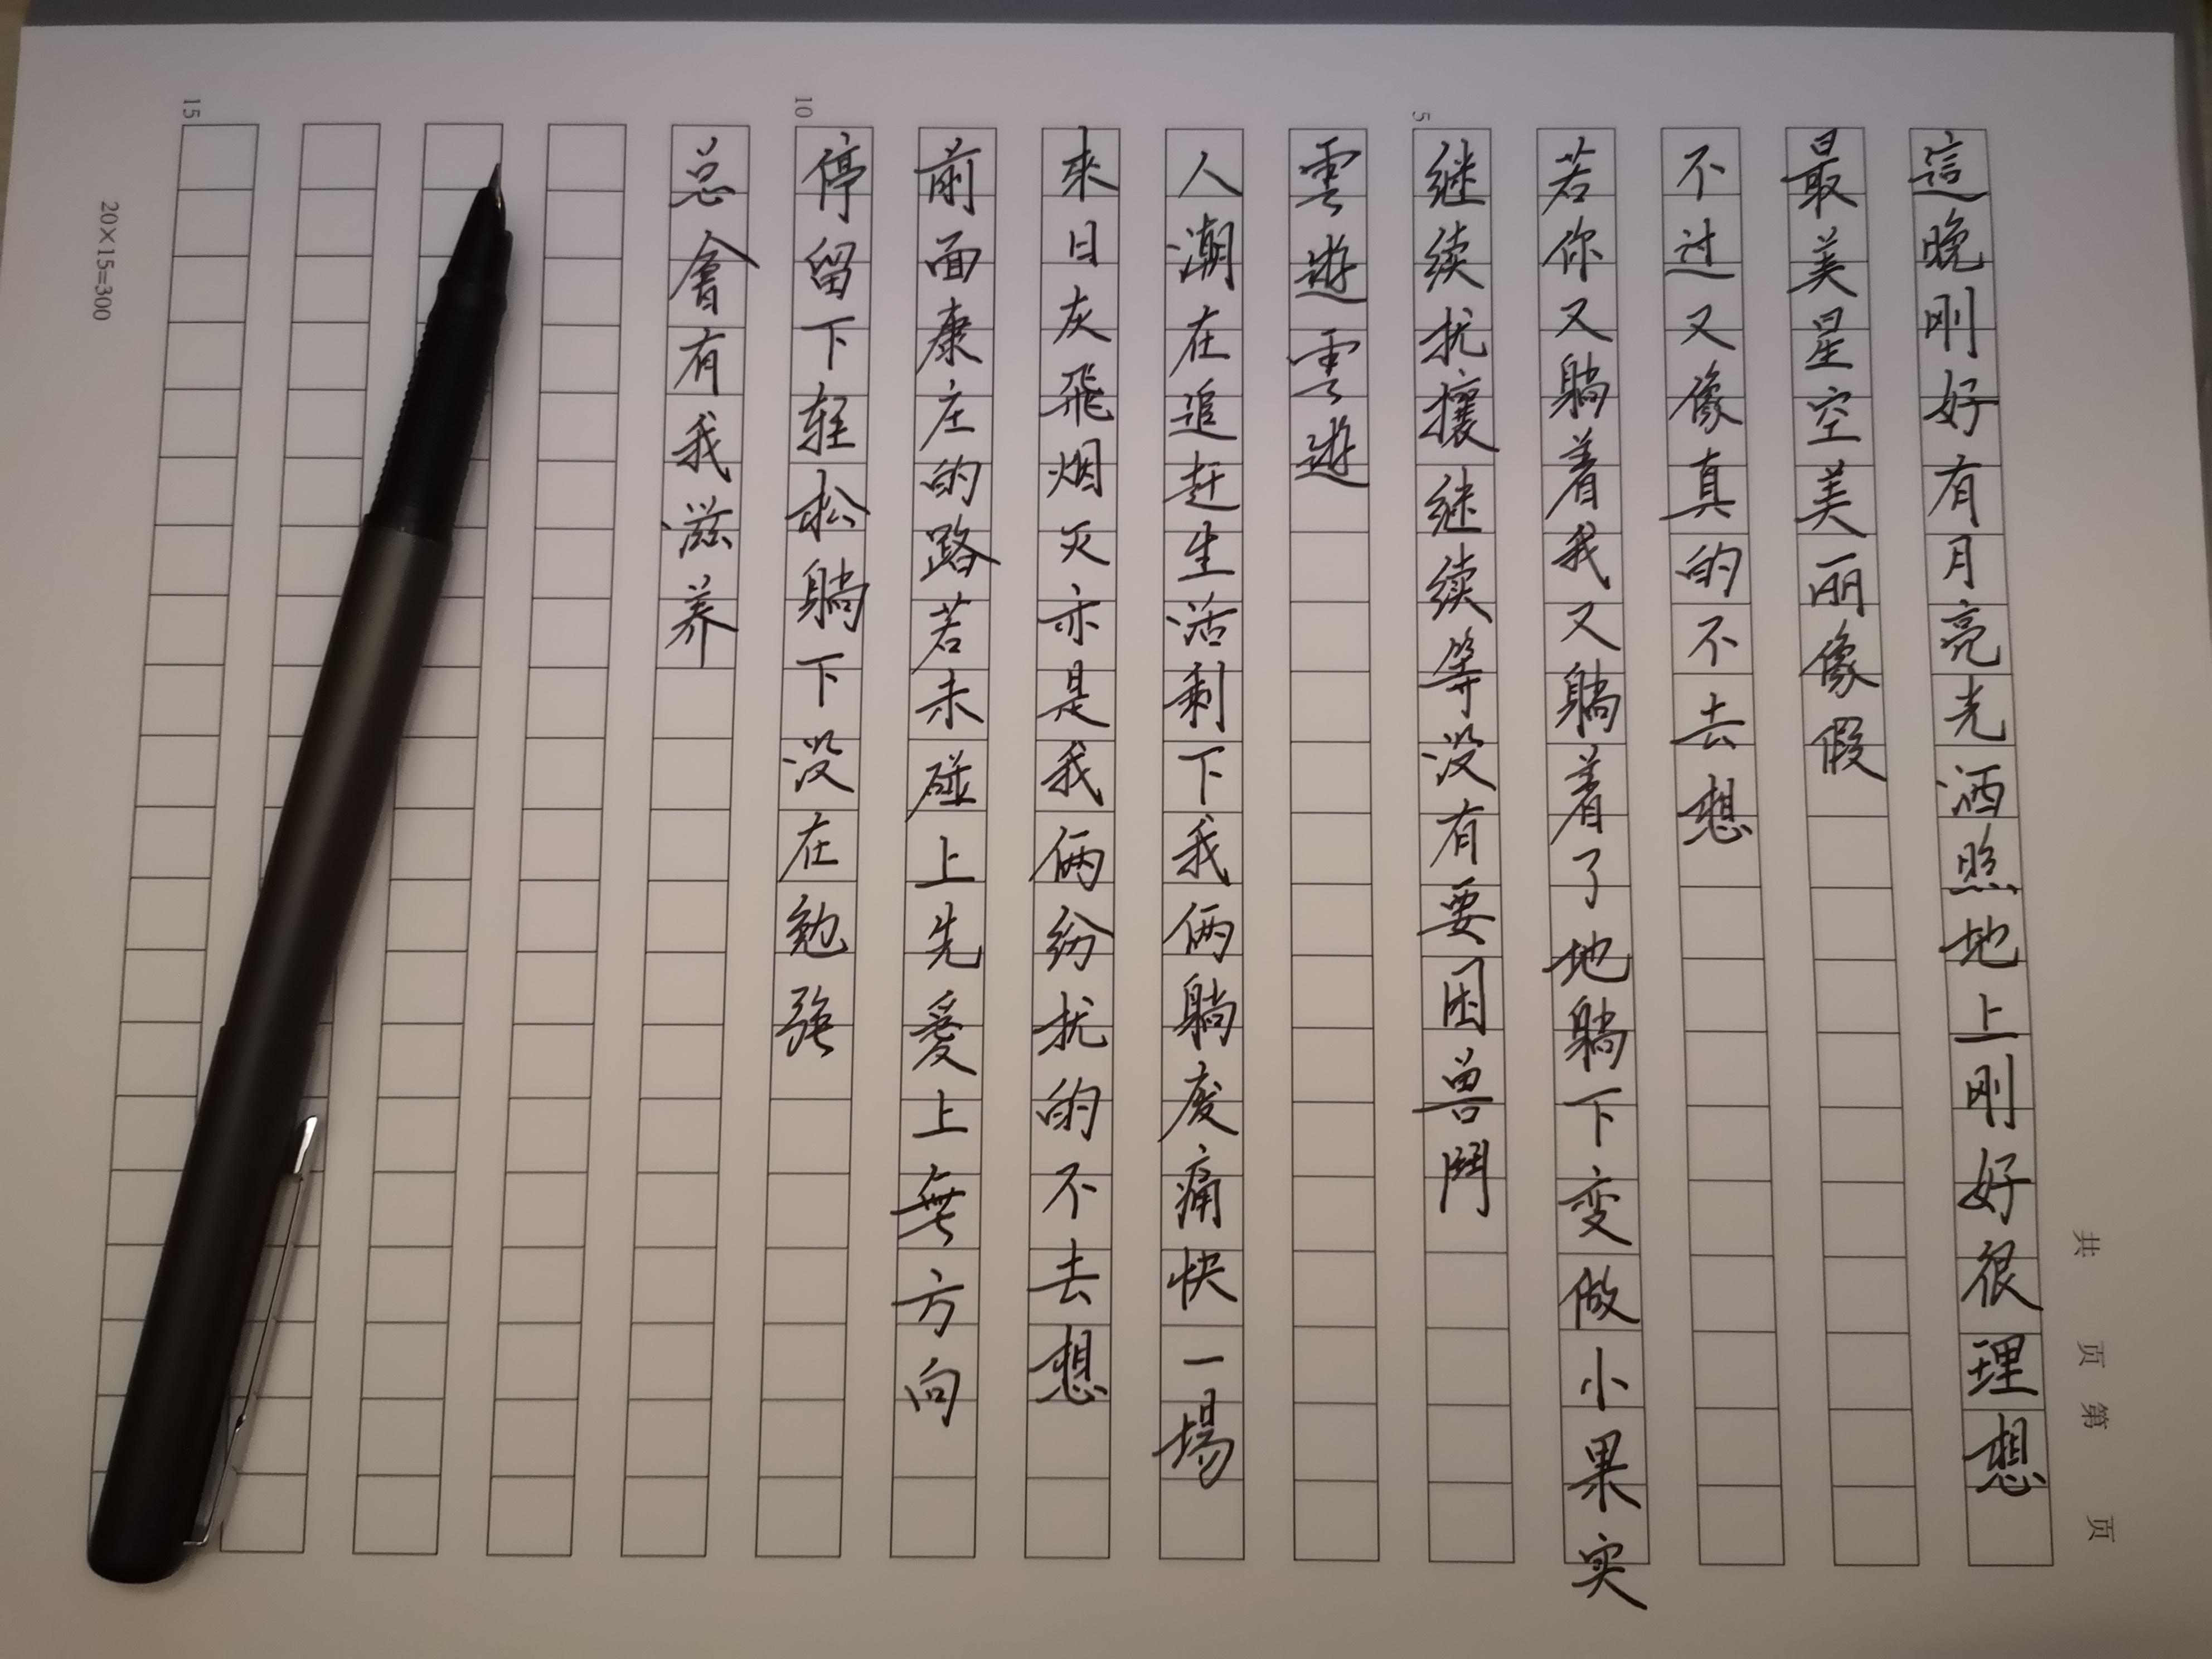 共 页 第 页
這晚刚好有月亮光洒照地上刚好很理想
最美星空美丽像假
不过又像真的不去想
若你又躺着我又躺着了地躺下变做小果实
继续扰攘继续等没有要困兽鬥
雲遊雲遊
人潮在追赶生活剩下我俩躺度痛快一場
來日灰飛烟灭亦是我俩纷扰的不去想
前面康庄的路若未碰上先愛上無方向
停留下轻松躺下没在勉强
总會有我滋养
5
10
15
20×15=300